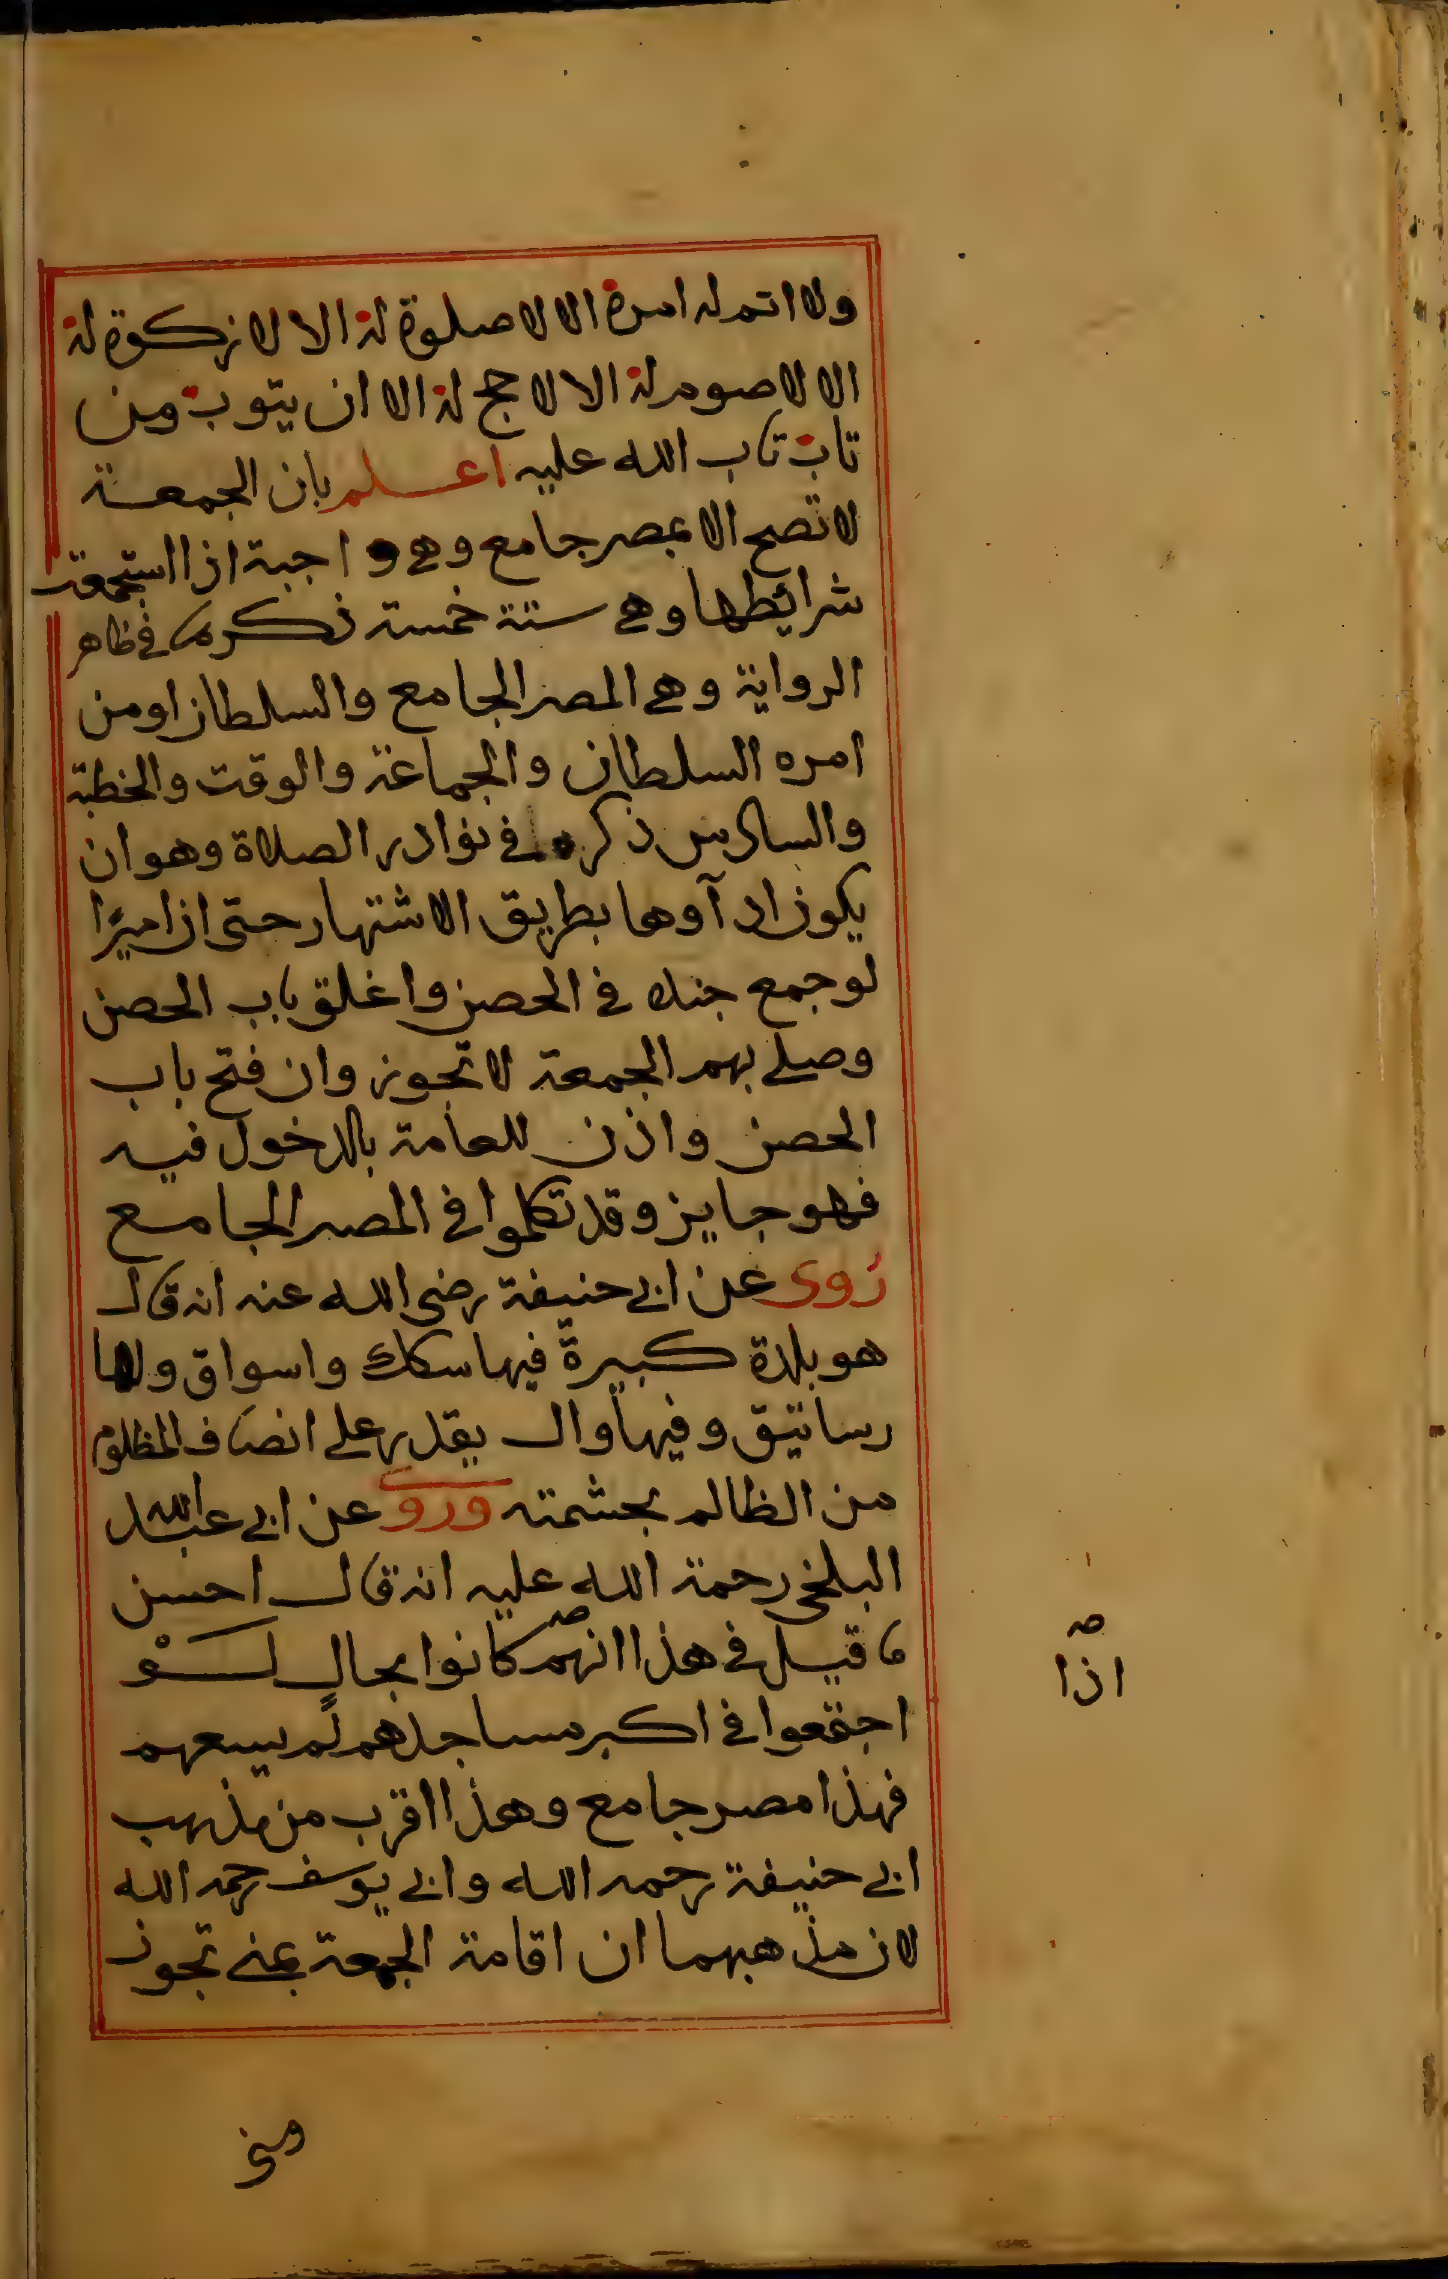 ولا اتم له امره الا لا صلوة له الا لا زكوة له
الا لا صوم له الا لا حج له الا ان يتوب ومن
تاب تاب الله عليه اعلم بان الجمعة
لا تصح الا بمصر جامع وهي واجبة اذا استجمعت
شرائطها وهي ستة خمسة ذكرها في ظاهر
الرواية وهي المصر الجامع والسلطان او من
امره السلطان والجماعة والوقت والخطبة
والسادس ذكره في نوادر الصلاة وهو ان
يكون ادآوها بطريق الاشتهار حتى ان اميرًا
لو جمع جنده في الحصن واغلق باب الحصن
وصلى بهم الجمعة لا تجوز وان فتح باب
الحصن واذن للعامة بالدخول فيه
فهو جايز وقد تكلموا في المصر الجامع
رُوى عن ابي حنيفة رضى الله عنه انه قال
هو بلدة كبيرة فيها سكك واسواق ولها
رساتيق وفيها وال يقدر على انصاف المظلوم
من الظالم بحشمته وروى عن ابي عبد الله
البلخي رحمة الله عليه انه قال احسن
ما قيل في هذا انهم كانوا بحال لَوْ
اجتمعوا في اكبر مساجدهم لم يسعهم
فهذا مصر جامع وهذا اقرب من مذهب
ابي حنيفة رحمه الله وابي يوسف رحمه الله
لان مذهبهما ان اقامة الجمعة بمنى تجوز
صه
اذا
ومنى